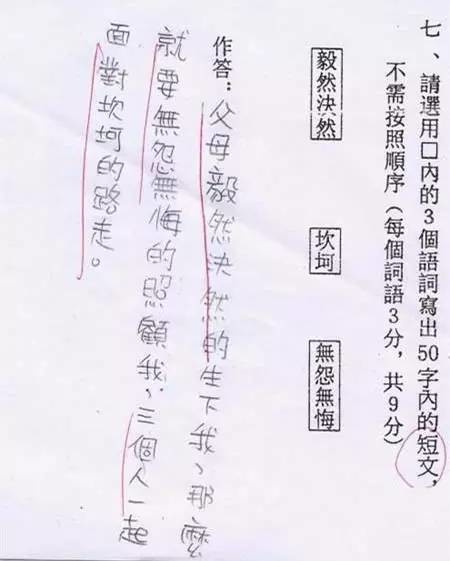 七、請選用口內的3個語詞寫出50字內的短文,
不需按照順序(每個詞語3分,共9分)
毅然決然 坎坷 無怨無悔
作答:父母毅然決然的生下我、那麼
就要無怨無悔的照顧我、三個人一起
面對坎坷的路走。